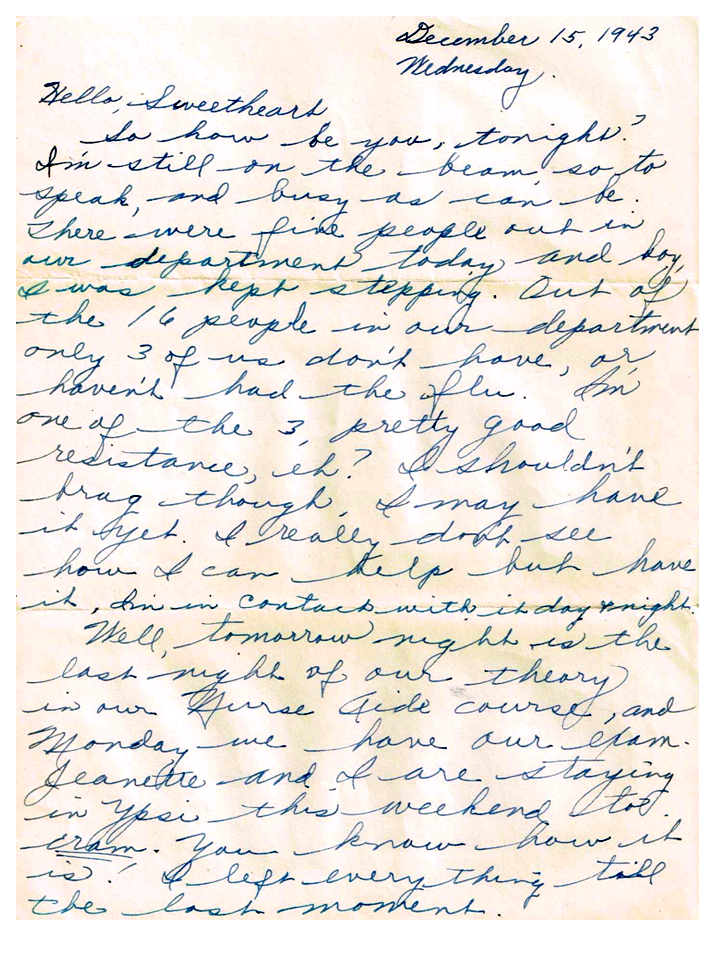 December 15, 1943
Wednesday.
Hello, Sweetheart
So how be you, tonight?
I'm still on the beam, so to
speak, and busy as can be.
There were five people out in
our department today and boy,
I was kept stepping. Out of
the 16 people in our department
only 3 of us don't have, or
haven't had the flu. I'm
one of the 3, pretty good
resistance, eh? I shouldn't
brag though, I may have
it yet. I really don't see
how I can help but have
it, I'm in contact with it day & night.
Well, tomorrow night is the
last night of our theory
in our Nurse Aide course, and
Monday we have our exam.
Jeanette and I are staying
in Ypsi this weekend to
cram. You know how it
is! I left everything till
the last moment.